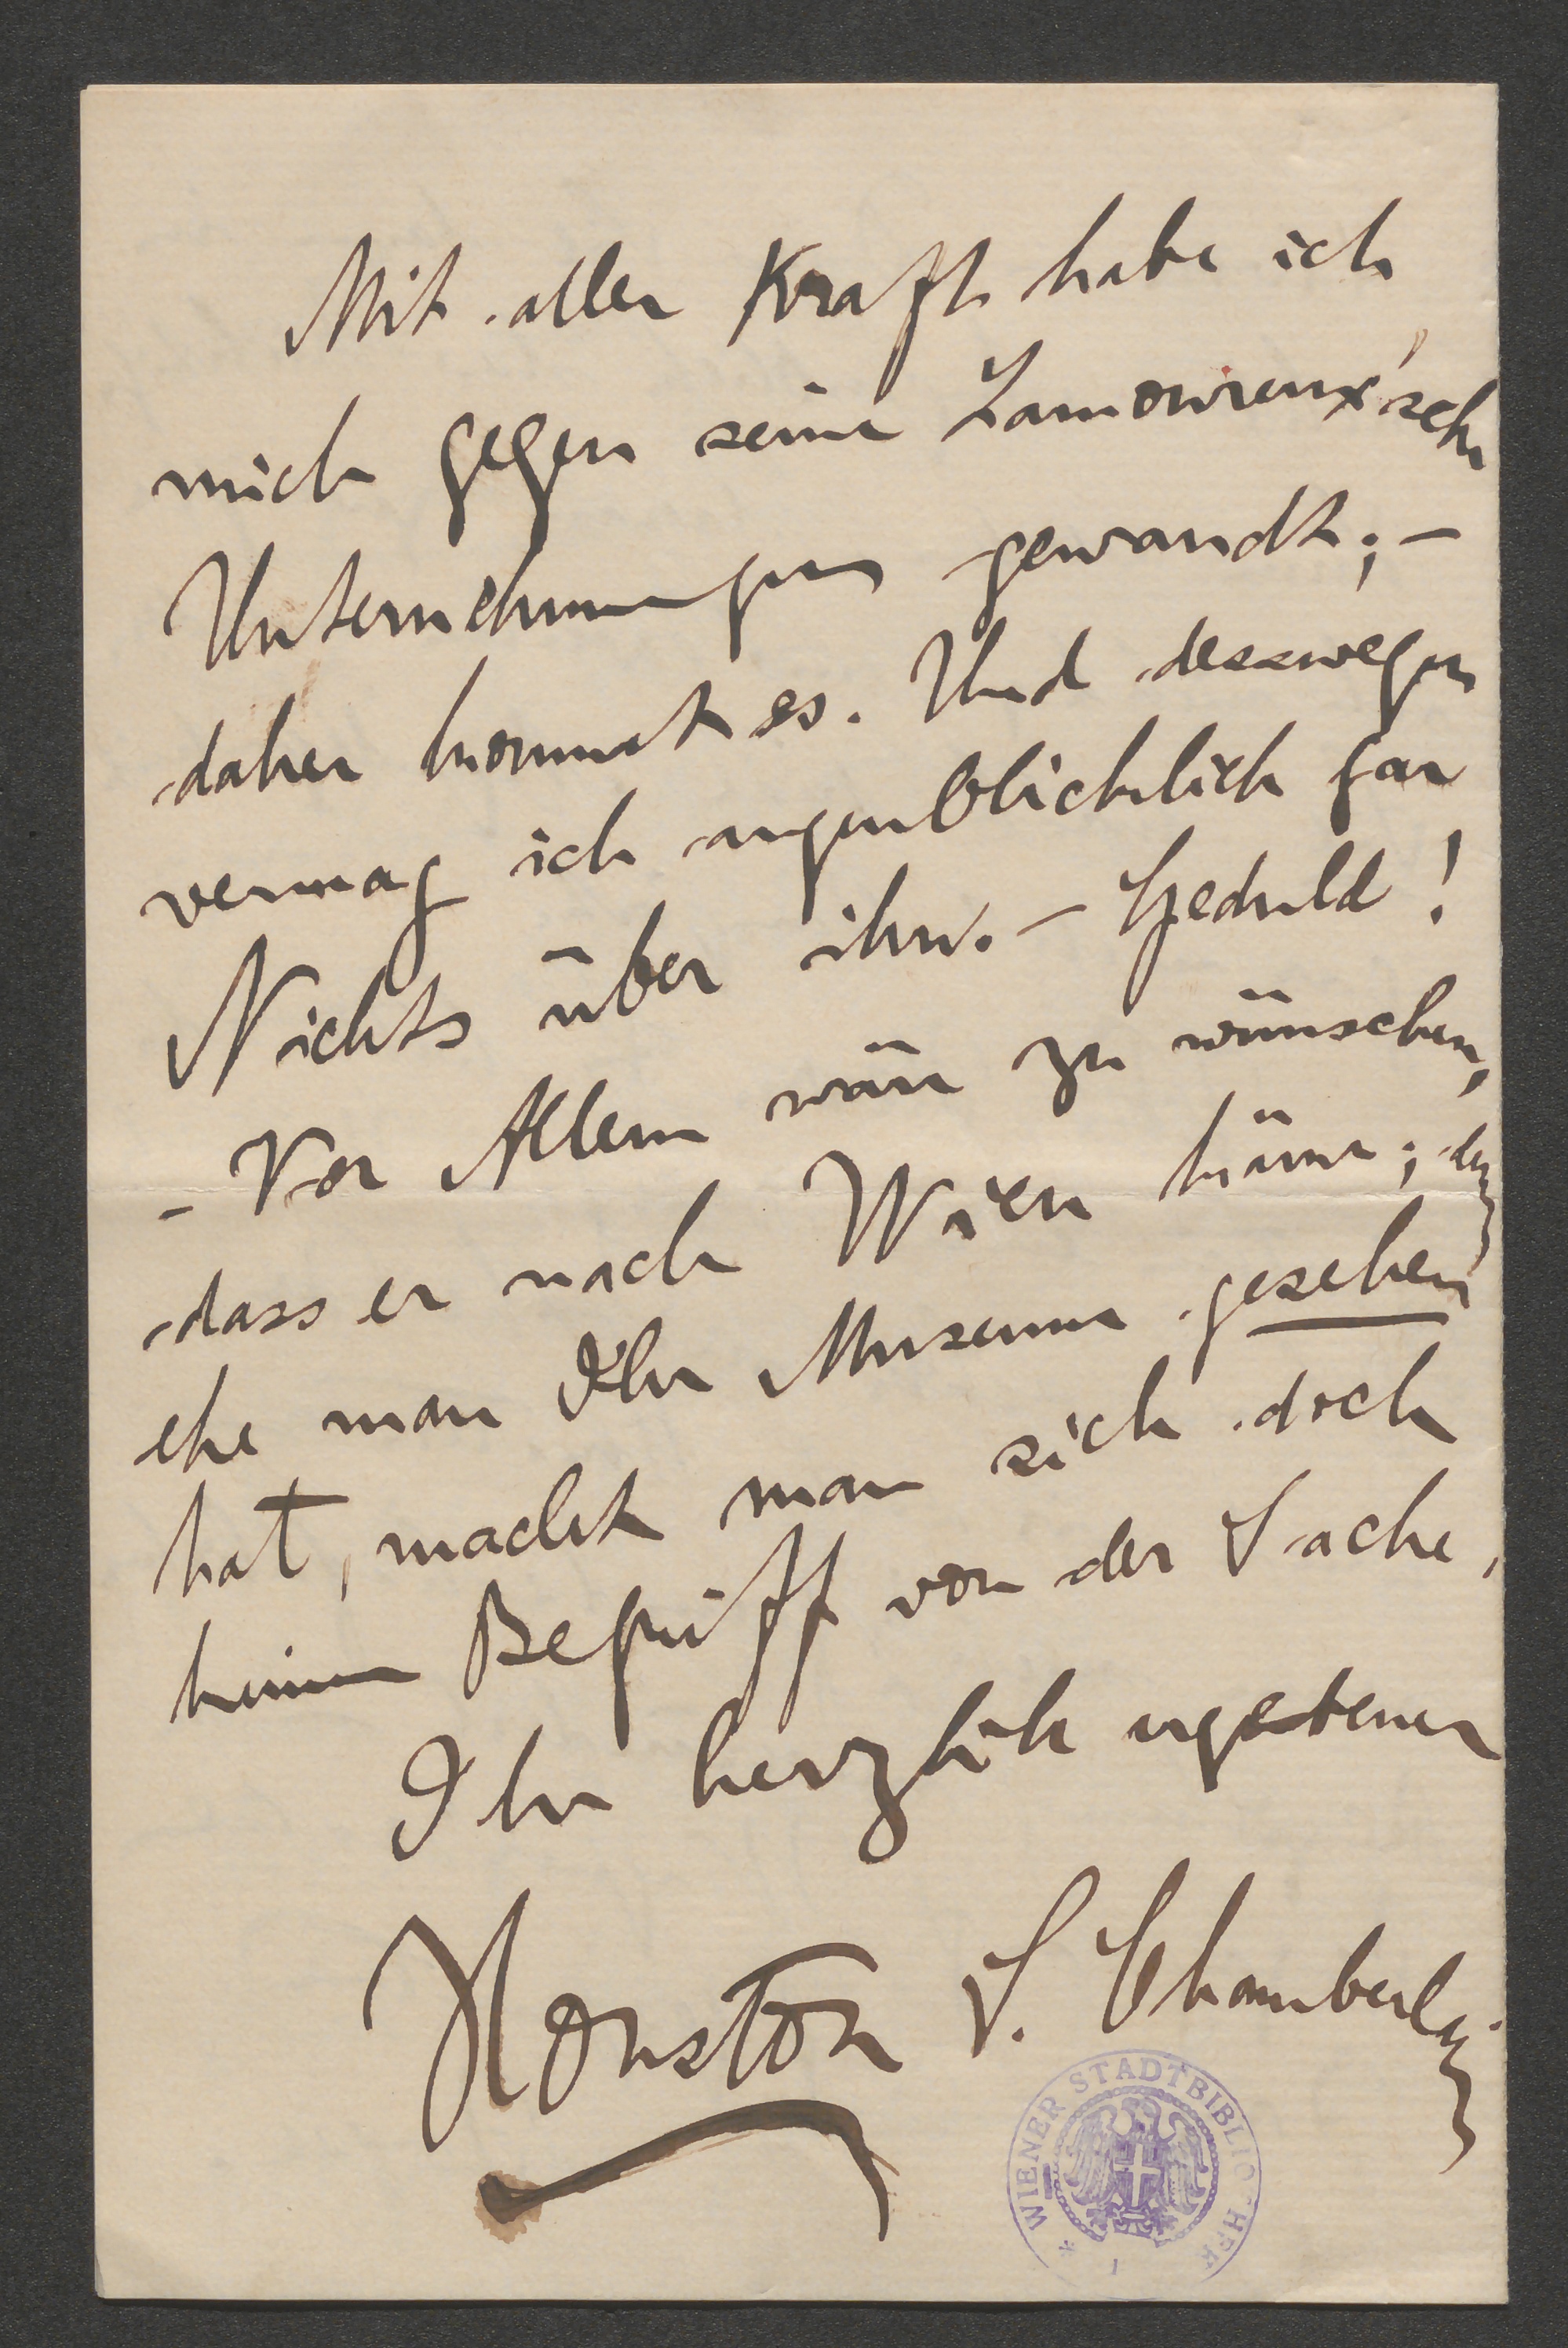 Mit aller Kraft habe ich
mich gegen seine Lamoureux'sche
Unternehmungen gewandt; –
daher kommt es. Und desswegen
vermag ich augenblicklich gar
Nichts über ihn. – Geduld!
– Vor Allem wäre zu wünschen,
dass er nach Wien käme; denn
ehe man Ihr Museum gesehen
hat, macht man sich doch
keinen Begriff von der Sache,
Ihr herzlich ergebener
Houston S. Chamberlain
* WIENER STADTBIBLIOTHEK